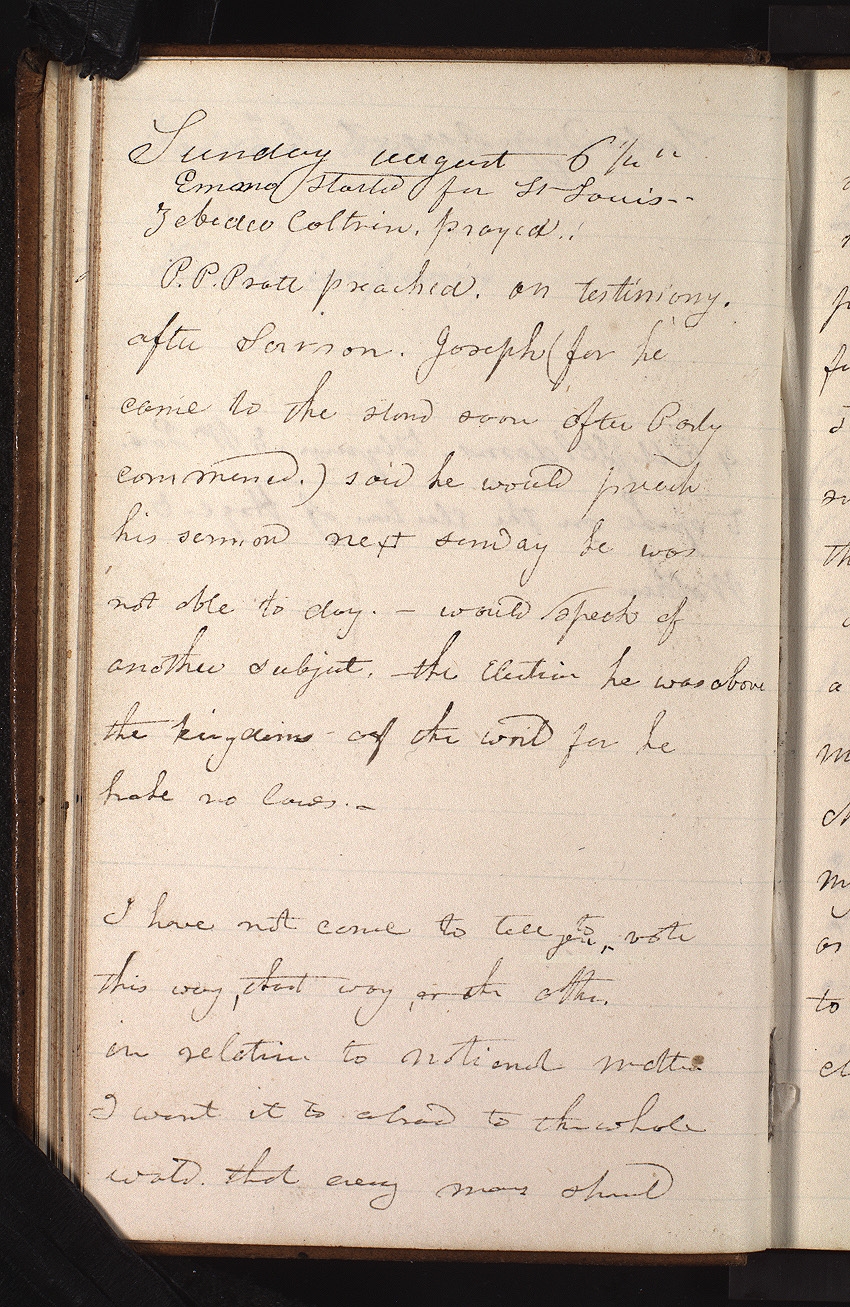 Sunday august 6th
Emma started for St Louis--
Zebedee Coltrin. prayed.
P. P. Pratt preached. on testimony.
after Sermon. Joseph (for he
came to the stand soon after Parly
commenced.) said he would preach
his sermon next sunday he was
not able to day. – would speak of
another subject. the Election he was above
the kingdoms of the world for he
hahe no laws. –
I have not come to tell you to vote
this way, that way, or the other.
in relation to national matters
I want it to abroad to the whole
world. that every man should